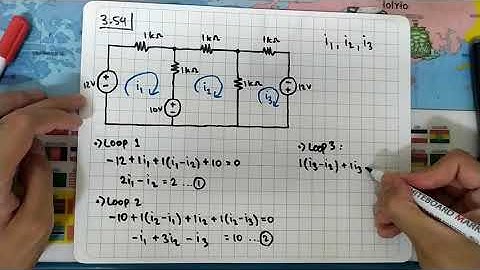 lolyto
3.54
1kΩ 1kΩ 1kΩ
i₁, i₂, i₃
1kΩ 1kΩ
12V i₁ i₂ i₃ 12V
10V
•) Loop 1
-12 + 1i₁ + 1(i₁-i₂) + 10 = 0
2i₁ - i₂ = 2 ... ①
•) Loop 2
-10 + 1(i₂-i₁) + 1i₂ + 1(i₂-i₃) = 0
-i₁ + 3i₂ - i₃ = 10 ... ②
•) Loop 3 :
1(i₃-i₂) + 1i₃
WHITEBOARD MAR